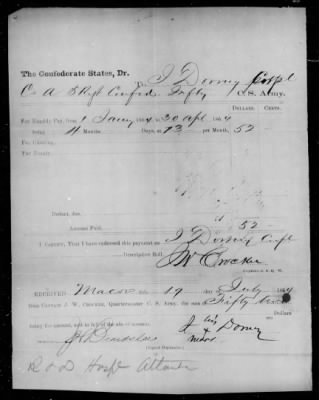 The Confederate States, Dr.
To J Dorsey Corpl
Co A 5 Regt Confed. Infty C. S. Army.
DOLLARS. CENTS.
For Monthly Pay, from 1 Jany 1864 to 30 apl 1864
being 4 Months Days, at 13 per Month, 52 -
For Clothing,
Deduct, due,
Amount Paid, 52 -
I CERTIFY, That I have endorsed this payment on J Dorsey Corpl
Descriptive Roll.
JW Crocker
RECEIVED Macon this 19 day of July 1864
from CAPTAIN J. W. CROCKER, Quartermaster C. S. Army, the sum of Fifty two
Dollars
being the amount, and in full of the above account.
J his Dorsey
x
mark
(Signed Duplicates.)
R & D Hospt Atlanta